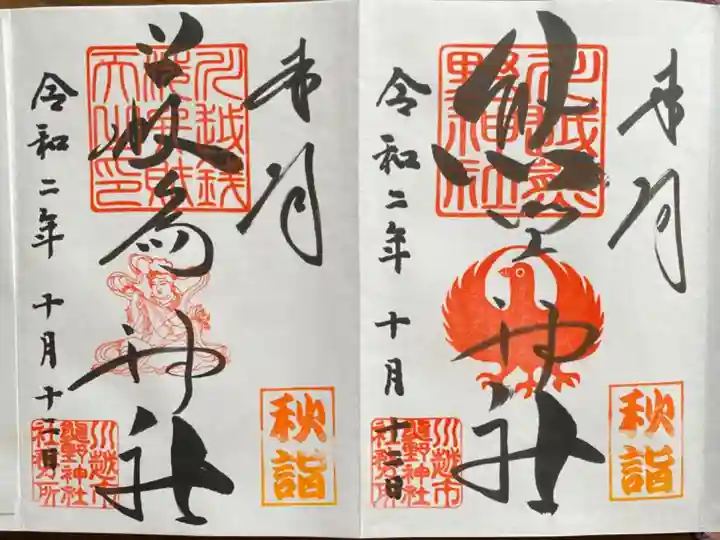 奉拝
川越熊
野神社
熊野神社
秋詣
令和二年 十月十二日
川越市
熊野神社
社務所
奉拝
川越銭
天之印
神社
秋詣
令和二年 十月十二日
川越市
熊野神社
社務所